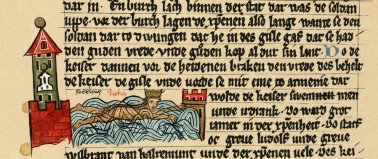 dar in · En burch lach binnen der stat dar was de soldan
uppe we der burch lagen de xpenen also lange wante se den
soldan dar to dwungen dat he in des gisle gaf dat se had
den guden vrede unde gulden kop al dur sin lant · Do de
keiser dannen vor de heidenen braken den vrede des behelt
de keiser de gisle unde vorde se mit eme to armenie dar
wolde de keiser swemmen inen
unde irdrank · Do ward grot
iamer in der xpenheit · Do starf
oc greve ludolf unde greve
wilbrant van halremunt unde der xpenen vele · Des